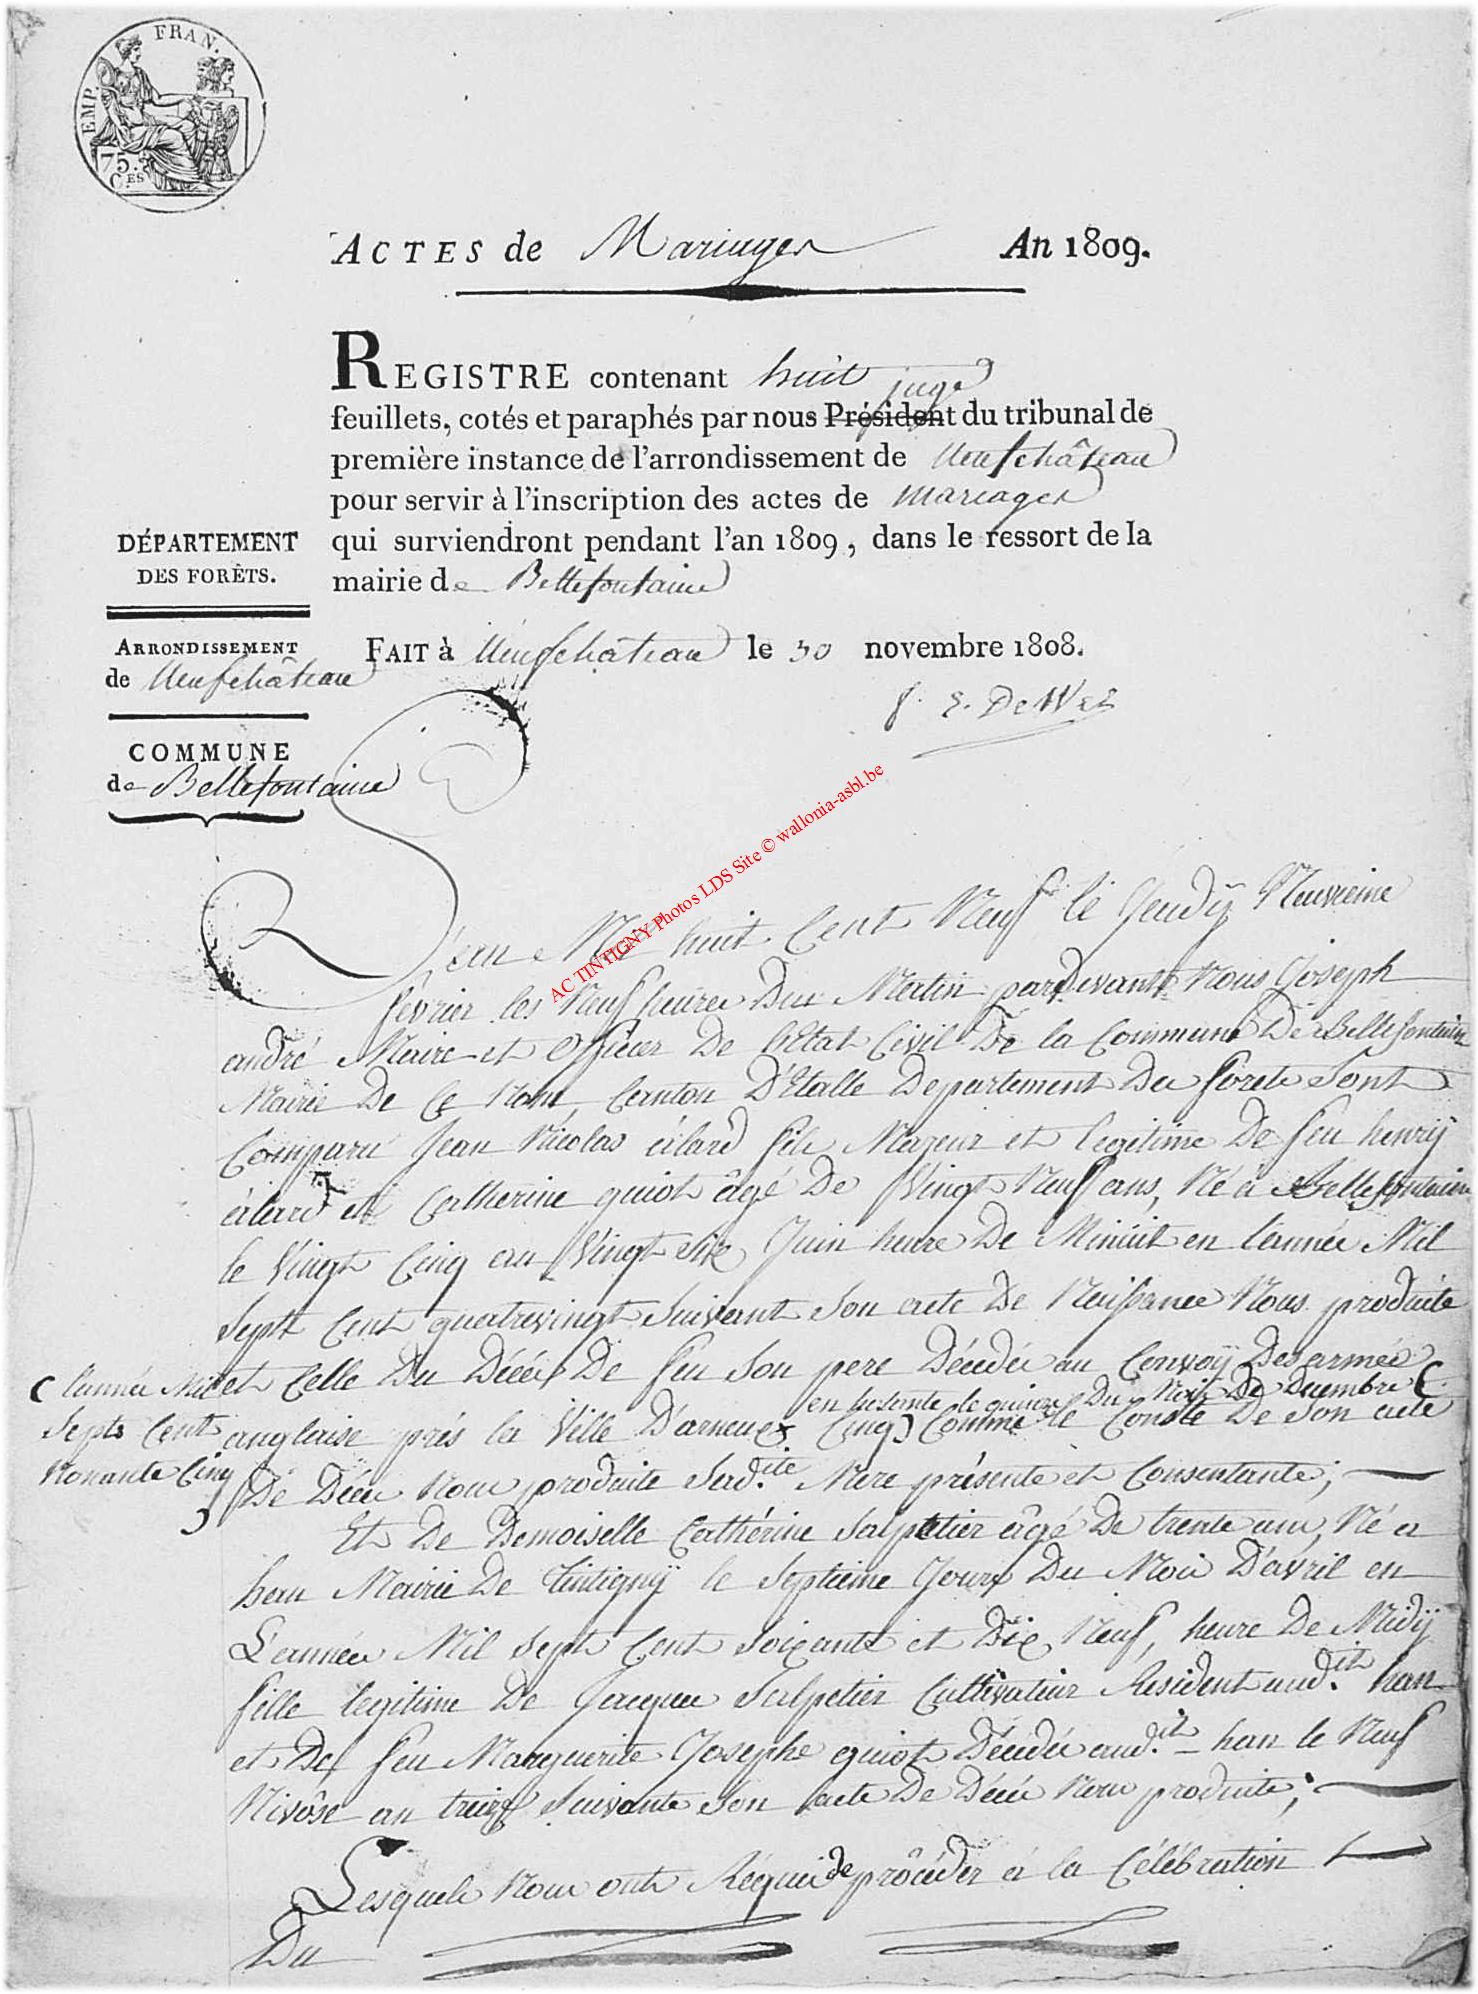 EMP. FRAN.
75.
C.ES
ACTES de Mariages An 1809.
REGISTRE contenant huit
juge
feuillets, cotés et paraphés par nous Président du tribunal de
première instance de l'arrondissement de Neufchâteau
pour servir à l'inscription des actes de mariages
qui surviendront pendant l'an 1809, dans le ressort de la
mairie de Bellefontaine
DÉPARTEMENT
DES FORÊTS.
ARRONDISSEMENT
de Neufchâteau
COMMUNE
de Bellefontaine
FAIT à Neufchâteau le 30 novembre 1808.
E. De Wez
AC TINTIGNY Photos LDS Site © wallonia-asbl.be
L'an Mil huit Cent Neuf le Jeudÿ Neuvieme
fevrier les Neuf heures Du Matin pardevant Nous Joseph
andré Maire et officier De l'Etat Civil De la Commune De Bellefontaine
Mairie De Ce Nom, Canton D'Etalle Departement Des forets Sont
Comparu Jean Nicolas alard fils Majeur et legitime De feu henrÿ
alard et Catherine quiot âgé De Vingt Neuf ans, Né a Bellefontaine
le Vingt Cinq au Vingt Six Juin heure De Minuit en l'année Mil
Sept Cent quatrevingt Suivant Son acte De Naissance Nous produite
et Celle Du Décés De feu Son pere Décédé au Convoÿ Des armée
en le quinze Du Mois De Decembre (
anglaise prés la Ville Cinq) Comme le Conste De Son acte
( l'année Mil
Sept Cent
Nonante Cinq
)
De Décés Nous produite Sud.ite Mere présente et Consentante;
Et De Demoiselle Cathérine Salpetier âgé De trente ans, Né a
han Mairie De Tintignÿ le Septieme Jours Du Mois D'avril en
L'année Mil Sept Cent Soixante et Dix Neuf, heure De Midÿ
fille legitime De Jacques Salpetier Cultivateur Résident aud.it han
et De feu Marguerite Josephe quiot Décédé aud.it han le Neuf
Nivôse an treize Suivante Son acte De Décés Nous produite;
Lesquels Nous ont Réquis de procéder a la Célébration
Du